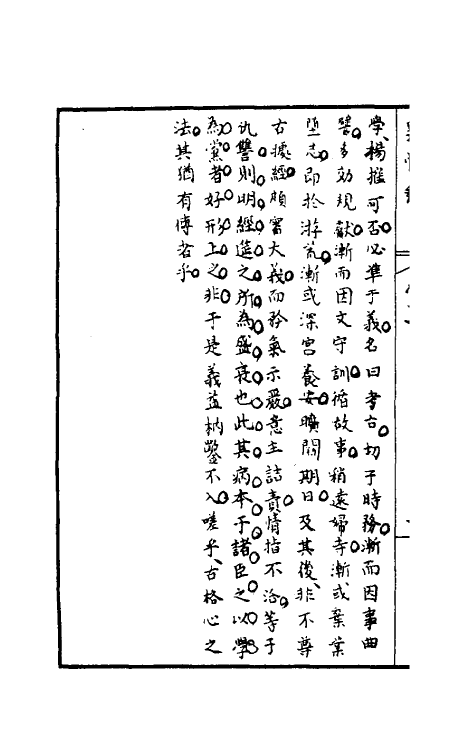 學揚搉可否必準于義名曰考古切于時務漸而因事曲
譬多効規獻漸而因文守訓循故事稍遠婦寺漸或棄業
墮志即於游荒漸或深宮養安曠闊期日及其後非不尊
古據經頗窨大義而矜氣示嚴意主詰責情指不洽等于
仇讐則明經筵之所為盛衰也此其病本于諸臣之以學
為黨者好形上之非于是義益枘鑿不入嗟乎古格心之
法其猶有傅者乎